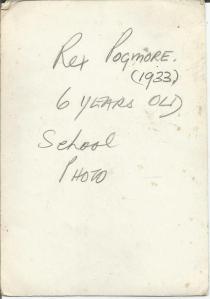 Rex Pogmore.
(1933)
6 YEARS OLD
School
PHOTO